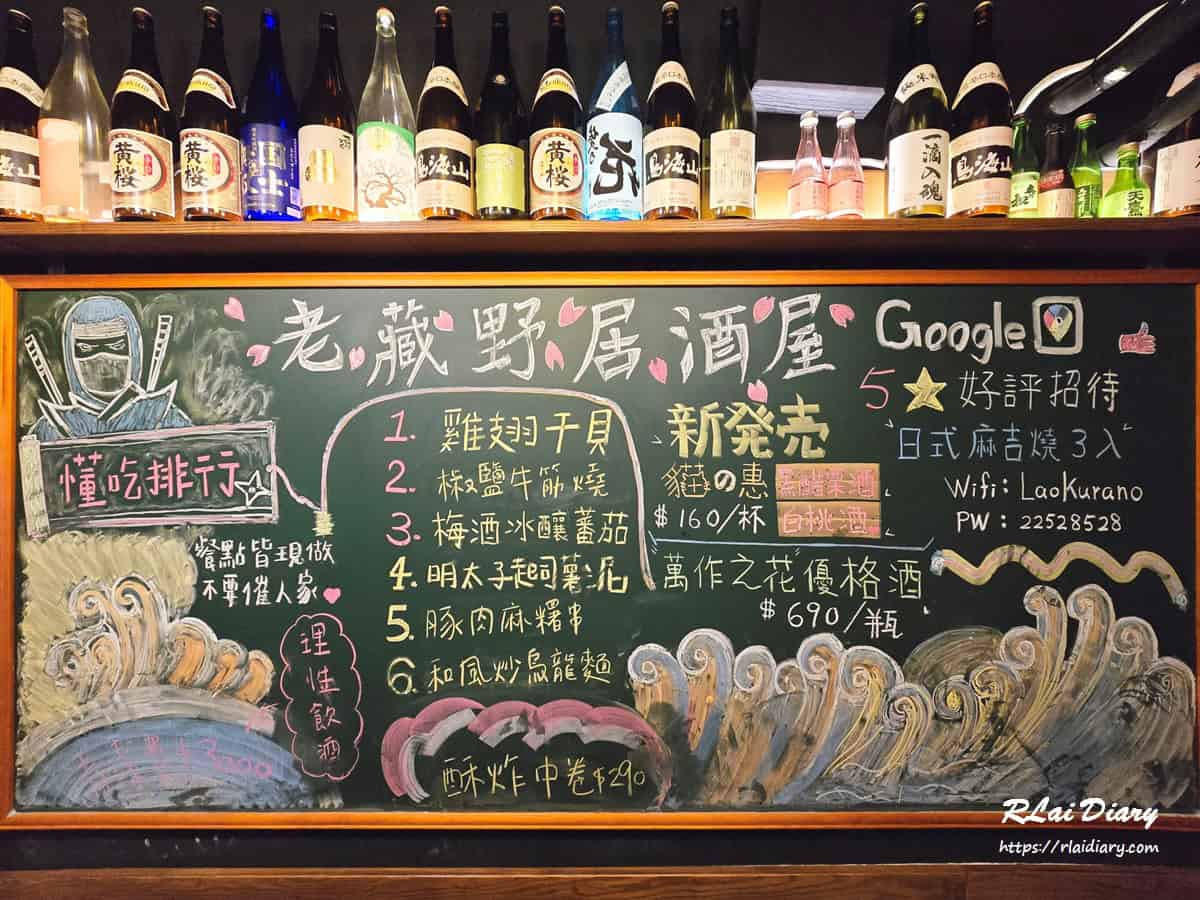 黄桜
黄桜
鳥海山
黄桜
花
鳥海山
純米
一滴入魂
鳥海山
老藏野居酒屋
Google
5 好評招待
日式麻吉燒3入
Wifi: LaoKurano
PW: 22528528
懂吃排行
餐點皆現做
不要催人家
理性飲酒
1. 雞翅干貝
2. 椒鹽牛筋燒
3. 梅酒冰釀蕃茄
4. 明太子起司薯泥
5. 豚肉麻糬串
6. 和風炒烏龍麵
酥炸中卷$290
新発売
貓の惠
黑醋栗酒
白桃酒
$160/杯
萬作之花優格酒
$690/瓶
RLai Diary
https://rlaidiary.com